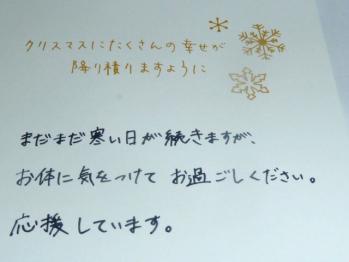 クリスマスにたくさんの幸せが
降り積りますように
まだまだ寒い日が続きますが、
お体に気をつけて お過ごしください。
応援しています。